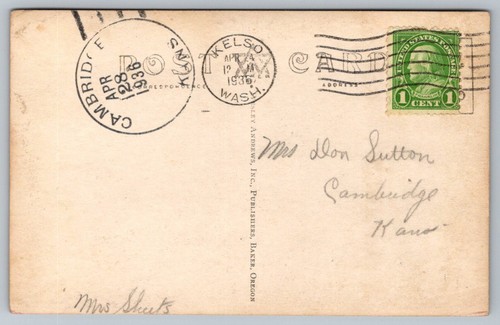 CAMBRIDGE
APR
28
1936
KANS
KELSO
APR
12 M
1936
WASH.
PO CARD
CORRESPONDENCE
ADDRESS
UNITED STATES POSTAGE
1 CENT 1
LEY ANDREWS, INC., PUBLISHERS, BAKER, OREGON
Mrs Don Sutton
Cambridge
Kans
Mrs Sheets